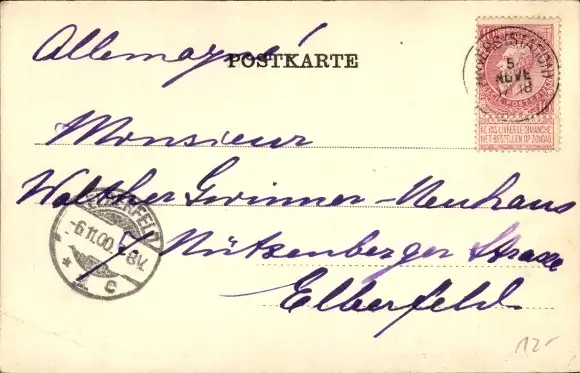 Allemagne!
POSTKARTE
ANVERS (STATION)
5
NOVE
18
NE PAS LIVRER LE DIMANCHE
NIET BESTELLEN OP ZONDAG
Monsieur
Walther Gwinner-Neuhaus
7 Nützenberger Strasse
Elberfeld.
ELBERFELD
-6.11.00.
8V.
* 1 c
12-